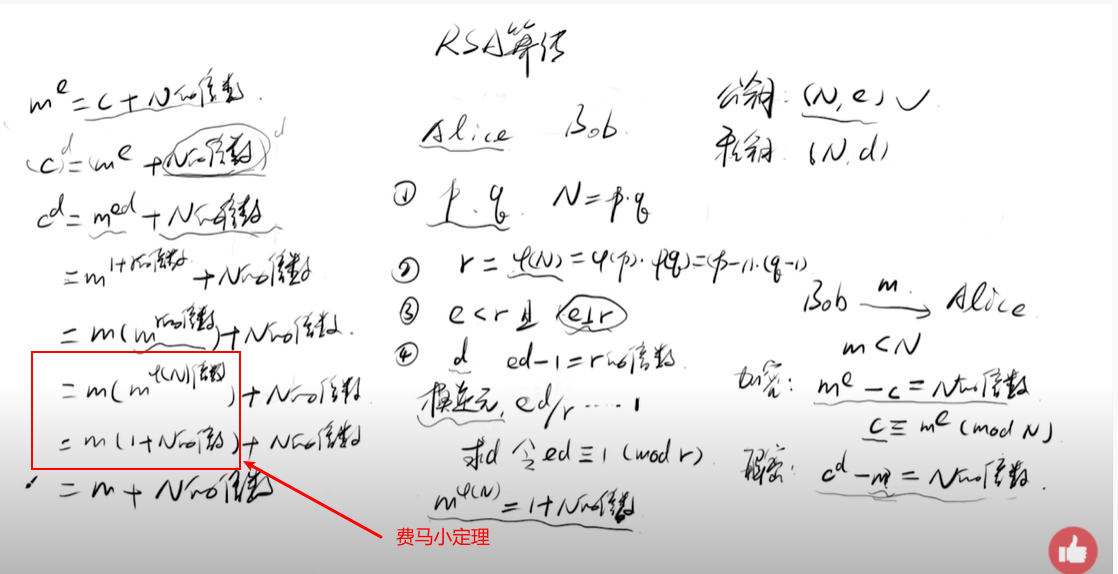 RSA算法
m^e = c + N的倍数.
(c)^d = (m^e + N的倍数)^d
c^d = m^ed + N的倍数
= m^1+r的倍数 + N的倍数
= m(m^r的倍数) + N的倍数.
= m(m^φ(N)倍数) + N的倍数.
= m(1+N的倍数) + N的倍数
= m + N的倍数
费马小定理
Alice Bob.
① p.q N=p·q
② r = φ(N) = φ(p)·φ(q)=(p-1)·(q-1)
③ e<r且 e⊥r
④ d ed-1=r的倍数
模逆元, ed/r ····· 1
求d 令ed≡1 (mod r).
m^φ(N) = 1+N的倍数
公钥: (N,e) ✓
私钥: (N,d)
Bob m. Alice
m<N
加密: m^e - c = N的倍数
c ≡ m^e (mod N).
解密: c^d - m = N的倍数.